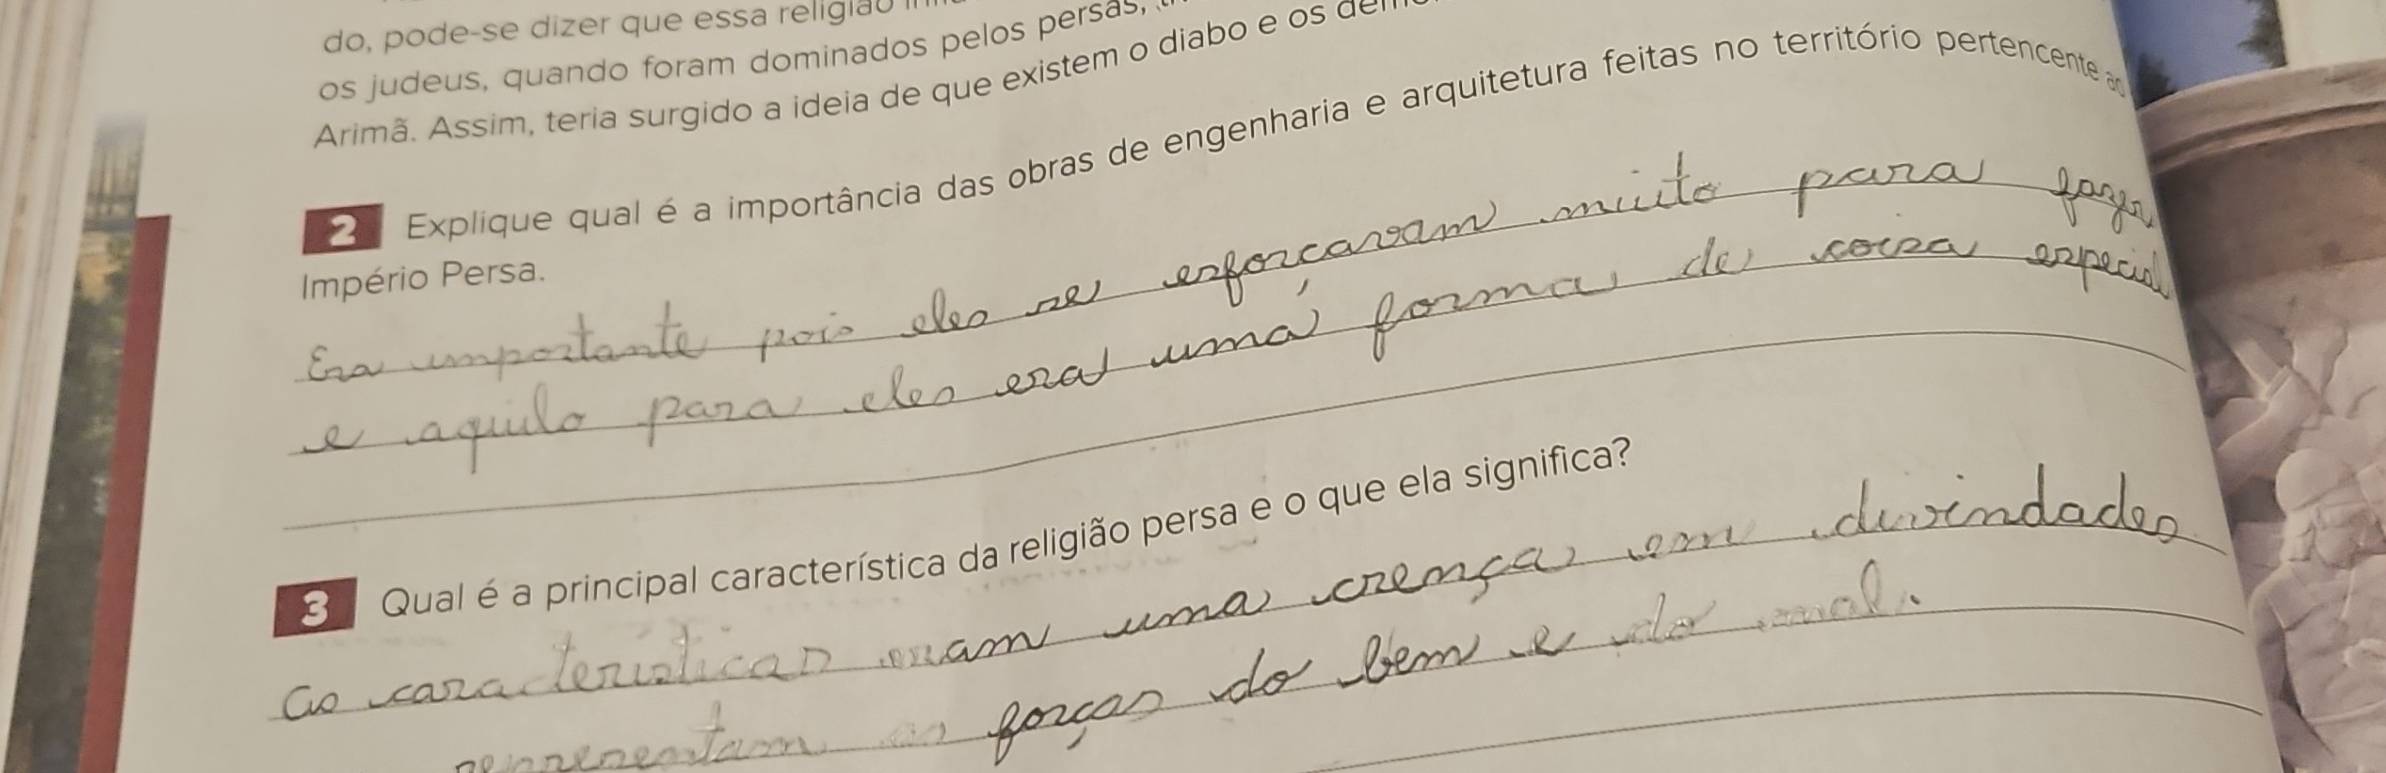 do, pode-se dizer que essa religião
os judeus, quando foram dominados pelos persas,
Arimã. Assim, teria surgido a ideia de que existem o diabo e os
2 Explique qual é a importância das obras de engenharia e arquitetura feitas no território pertencente ao
Império Persa.
Era importante pois eles se esforçavam muito para fazer
e aquilo para eles era uma forma de coiza especial
3 Qual é a principal característica da religião persa e o que ela significa?
As caracteristicas eram uma crença em divindades
representam as forças do bem e do mal.